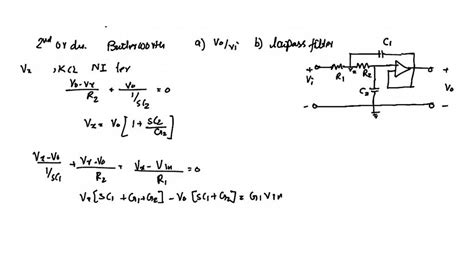 2nd order Butterworth a) Vo/Vi b) lowpass filter
Vx , KCL NI ter
Vo-Vx/R2 + Vo/1/SC2 = 0
Vx = Vo [ 1 + SC2/G2 ]
Vx-Vo/1/SC1 + Vx-Vo/R2 = Vx-Vin/R1 = 0
Vx [ SC1 + G1 + G2 ] - Vo [ SC1 + G2 ] = G1 Vin
C1
+ R1 Vx R2 + +
Vi C2 Vo
- -